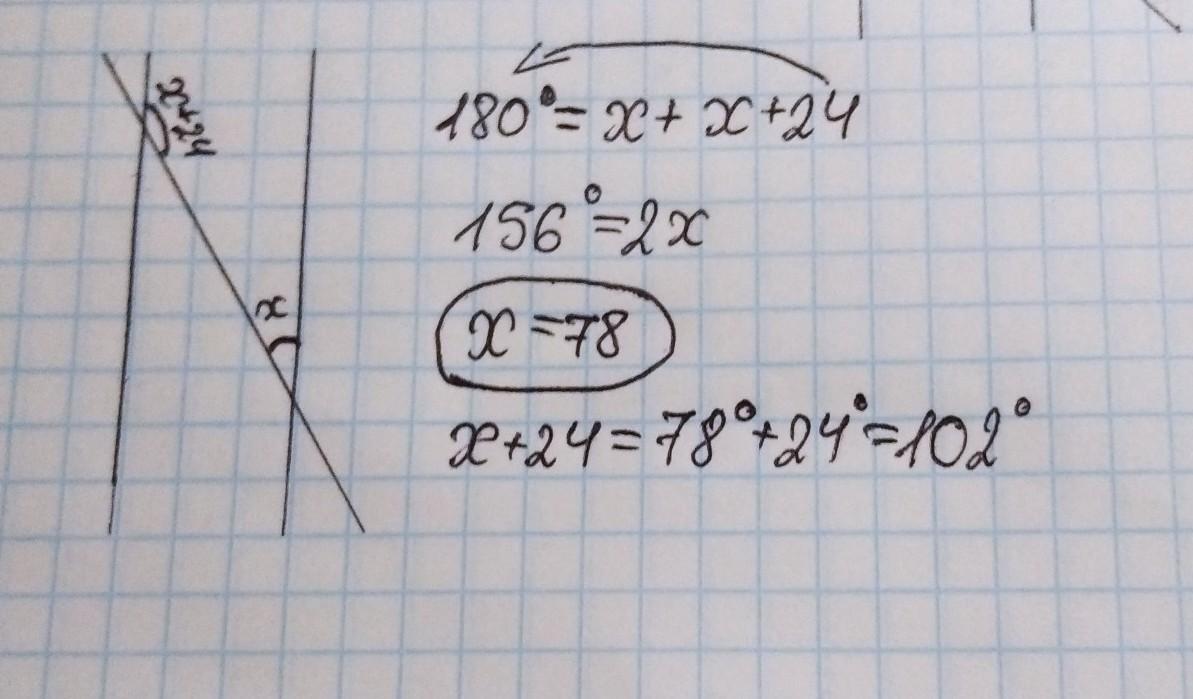 x+24
x
180°= x + x+24
156°=2x
x =78
x+24=78°+24°=102°